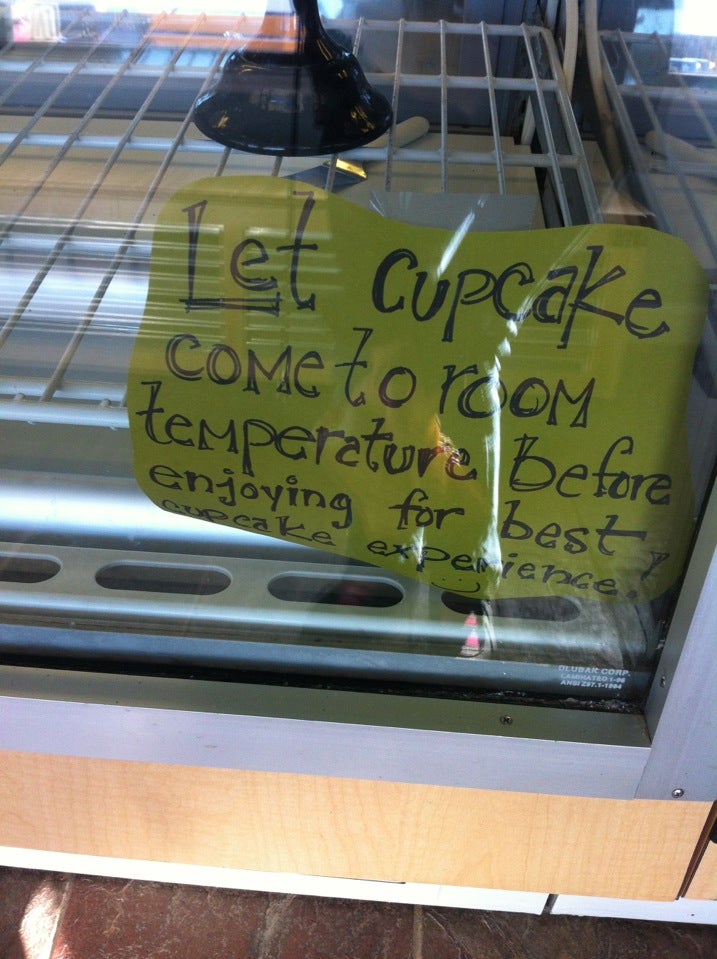 Let cupcake
come to room
temperature before
enjoying for best
cupcake experience!
DLUBAK CORP.
LAMINATED 1-06
ANSI Z97.1-1984